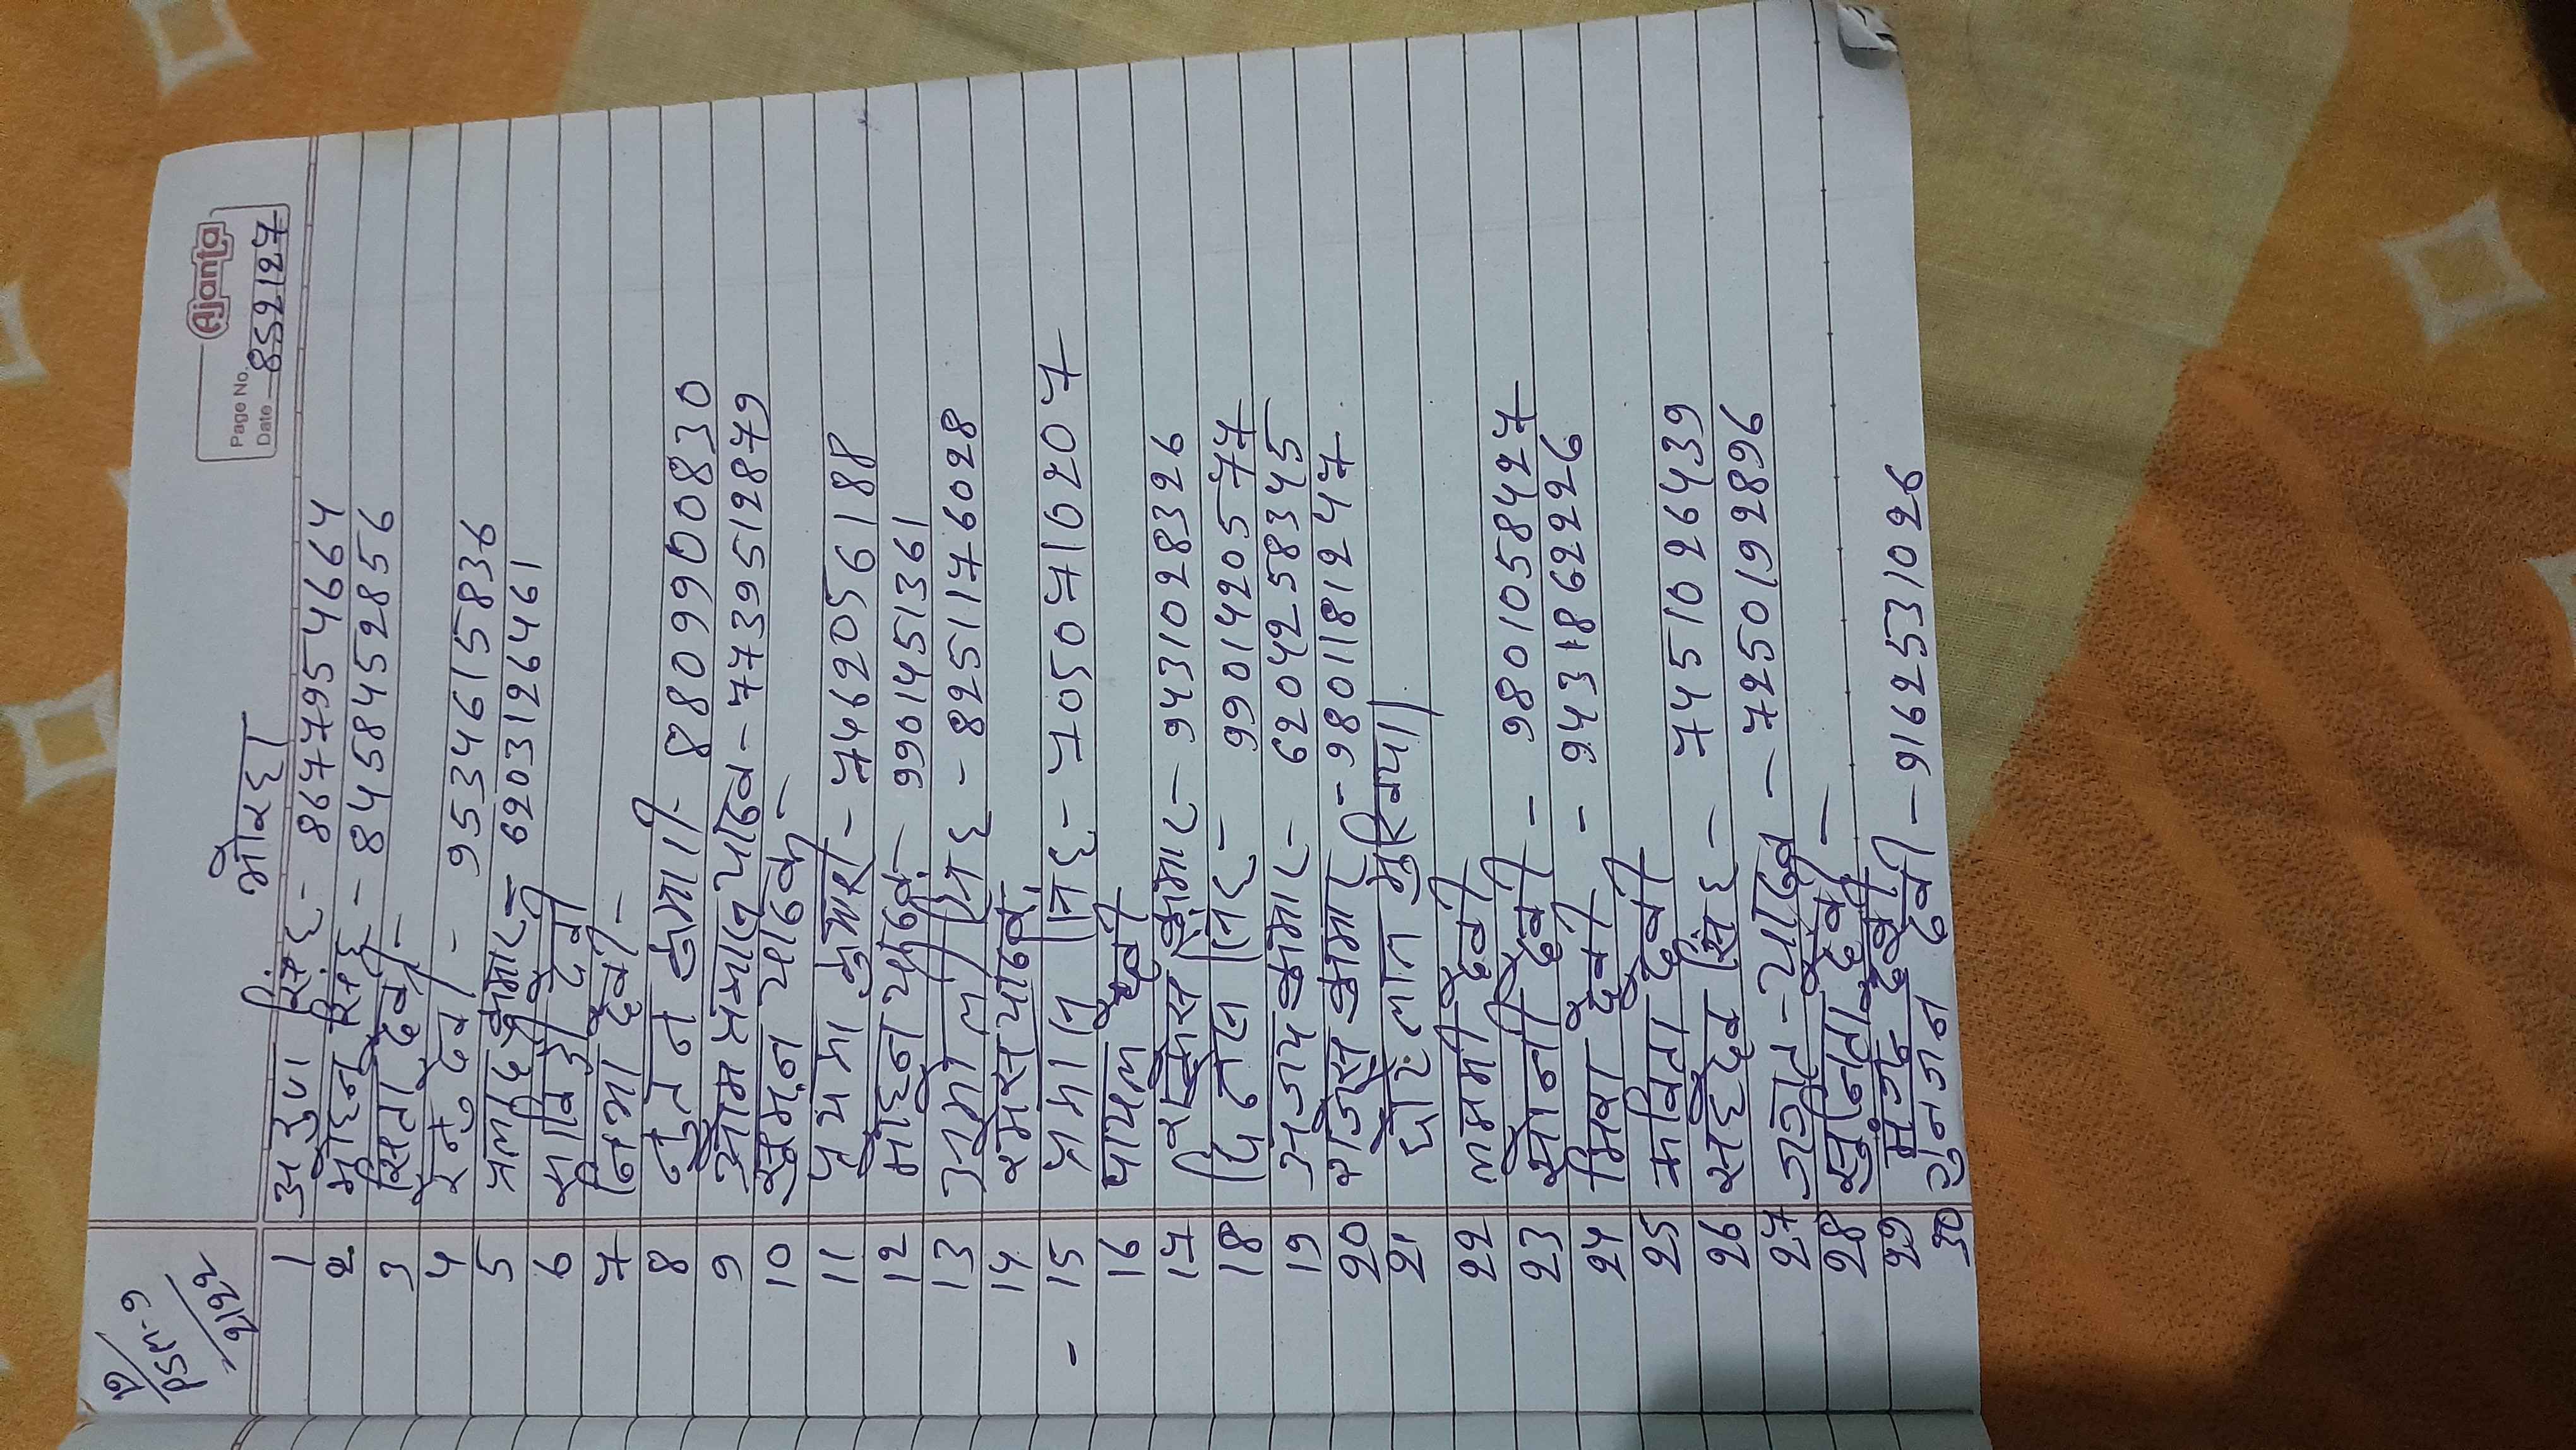 Ajanta
Page No.
Date 852127
PSM-9
मोबर्दा
1 अरुण सिंह - 8677954664
2 मोहन सिंह - 8458452856
3 सिता देवी -
4 रेनु देवी - 9534615836
5 प्रलाद कुमार - 6203126461
6 देवी
7 निभा देवी -
8 नुतन कुमारी - 8809900830
9 ओम प्रकाश यादव - 7739512879
10 सुमन पाठक -
11 कुमारी - 7462056188
12 मोहन पाठक - 9901451361
13 उर्मीला सिंह - 8251176028
14 रमेस पाठक
- 15 प्रभात सिंह - 7050710207
16 पायल देवी
17 विकास कुमार - 9431028326
18 सिंह - 9901420577
19 अजय कुमार - 6204258345
20 राजेस कुमार - 9801181247
21 मुखिया
22 लक्ष्मी देवी
23 सोनी देवी - 9801058427
24 देवी - 9431862226
25 कविता देवी
26 सहदेव सिंह - 7451026439
27 यादव - 7250192896
28 सुनिता देवी -
29 मंजु देवी
30 गुनजन देवी - 9162531026